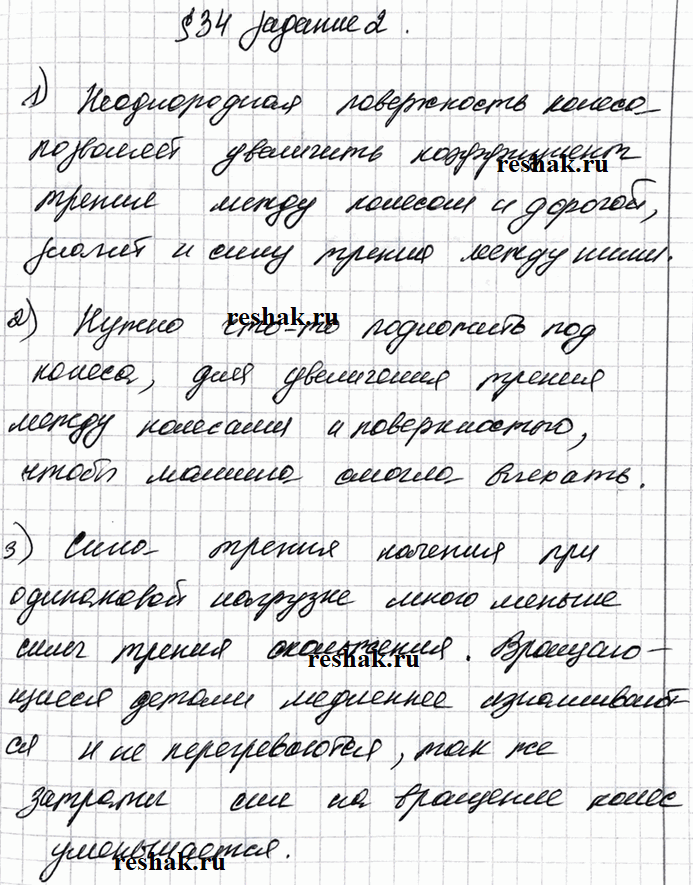 §34 задание 2.
1) Неоднородная поверхность колеса
позволяет увеличить коэффициент
reshak.ru
трение между колесом и дорогой,
значит и силу трения между ними.
reshak.ru
2) Нужно что-то подложить под
колеса, для увеличения трения
между колесами и поверхностью,
чтобы машина смогла выехать.
3) Сила трения качения при
одинаковой нагрузке много меньше
силы трения скольжения. Вращаю-
reshak.ru
щиеся детали медленнее изнашивают-
ся и не перегреваются, так же
затраты сил на вращение колес
уменьшается.
reshak.ru